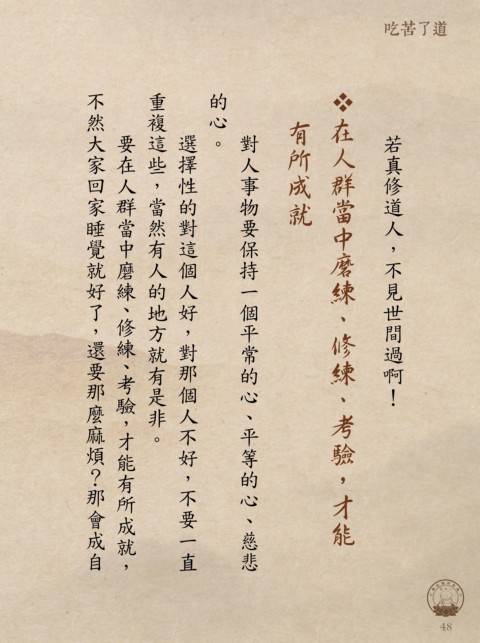 吃苦了道
若真修道人，不見世間過啊！
❖在人群當中磨練、修練、考驗，才能
有所成就
對人事物要保持一個平常的心、平等的心、慈悲
的心。
選擇性的對這個人好，對那個人不好，不要一直
重複這些，當然有人的地方就有是非。
要在人群當中磨練、修練、考驗，才能有所成就，
不然大家回家睡覺就好了，還要那麼麻煩？那會成自
48